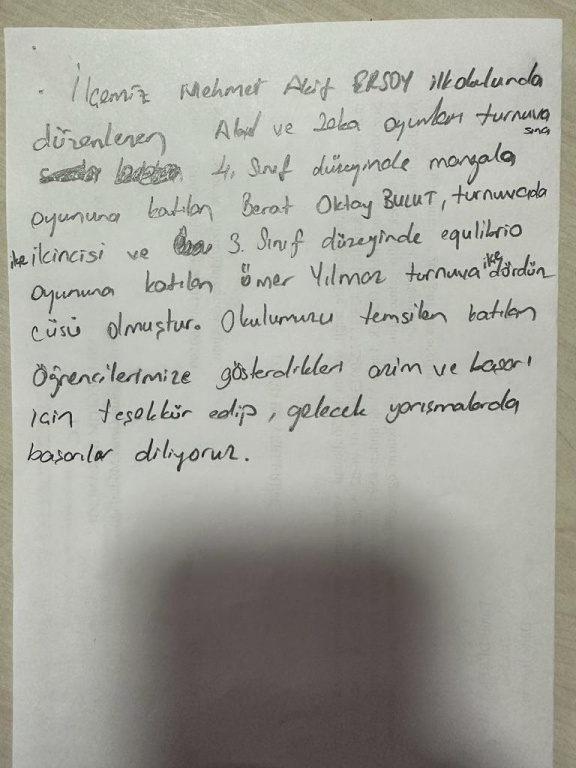 İlçemiz Mehmet Akif ERSOY ilkokulunda
düzenlenen Akıl ve zeka oyunları turnuva
sına
4. Sınıf düzeyinde mangala
oyununa katılan Berat Oktay BULUT, turnuvada
ilçe ikincisi ve 3. Sınıf düzeyinde equlibrio
oyununa katılan Ömer Yılmaz turnuva ilçe dördün
cüsü olmuştur. Okulumuzu temsilen katılan
Öğrencilerimize gösterdikleri azim ve başarı
için teşekkür edip, gelecek yarışmalarda
başarılar diliyoruz.